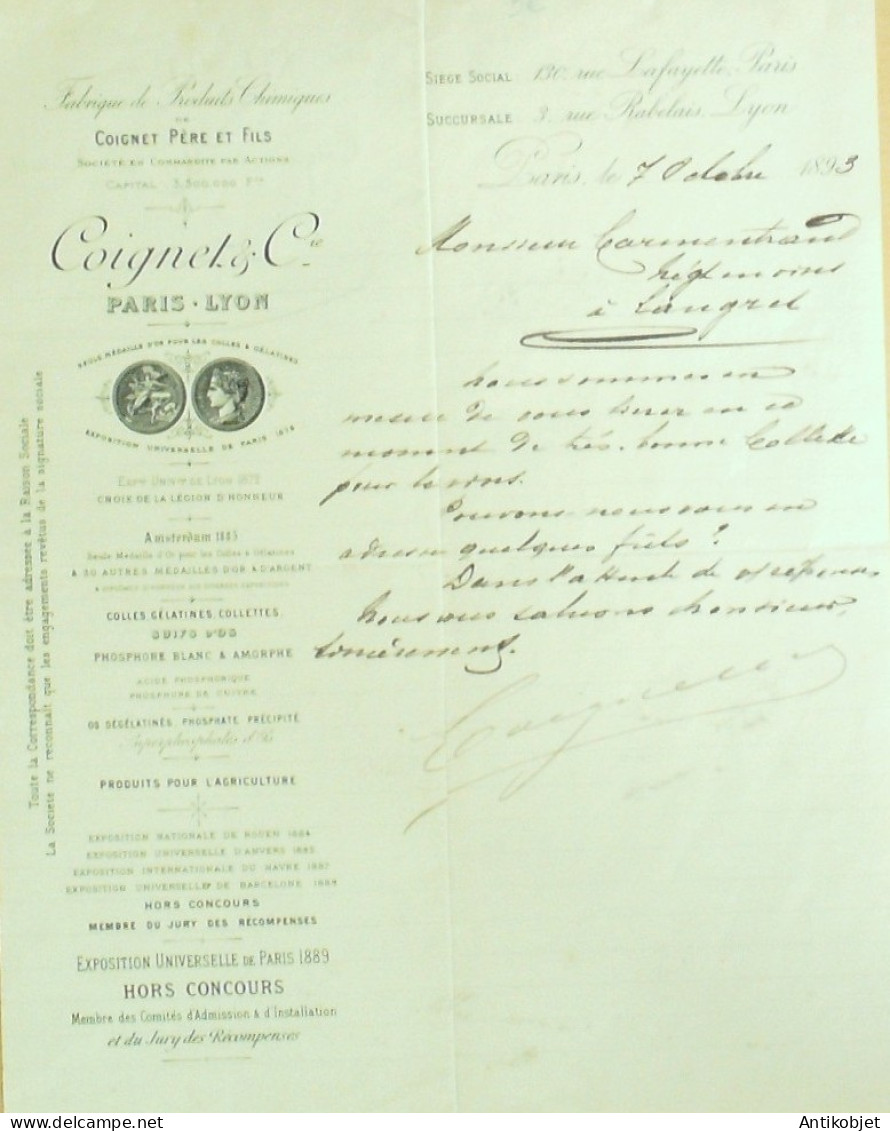 Fabrique de Produits Chimiques
DE
COIGNET PÈRE ET FILS
SOCIÉTÉ EN COMMANDITE PAR ACTIONS
CAPITAL 3,500,000 Frs
Coignet & Cie
PARIS · LYON
SEULE MÉDAILLE D'OR POUR LES COLLES & GÉLATINES
EXPOSITION UNIVERSELLE DE PARIS 1878
EXPon UNIVlle DE LYON 1872
CROIX DE LA LÉGION D'HONNEUR
Amsterdam 1883
Seule Médaille d'Or pour les Colles & Gélatines
& 30 AUTRES MÉDAILLES D'OR & D'ARGENT
COLLES GÉLATINES, COLLETTES
SUIFS D'OS
PHOSPHORE BLANC & AMORPHE
ACIDE PHOSPHORIQUE
PHOSPHURE DE CUIVRE
OS DÉGÉLATINÉS, PHOSPHATE PRÉCIPITÉ
Superphosphates d'Os
PRODUITS POUR L'AGRICULTURE
EXPOSITION NATIONALE DE ROUEN 1884
EXPOSITION UNIVERSELLE D'ANVERS 1885
EXPOSITION INTERNATIONALE DU HAVRE 1887
EXPOSITION UNIVERSELLE DE BARCELONE 1888
HORS CONCOURS
MEMBRE DU JURY DES RÉCOMPENSES
EXPOSITION UNIVERSELLE DE PARIS 1889
HORS CONCOURS
Membre des Comités d'Admission & d'Installation
et du Jury des Récompenses
Toute la Correspondance doit être adressée à la Raison Sociale
La Société ne reconnaît que les engagements revêtus de la signature sociale
SIÈGE SOCIAL 130, rue Lafayette, Paris
SUCCURSALE 3, rue Rabelais, Lyon
Paris, le 7 Octobre 1893
Monsieur Carmentrand
à Langres
Nous sommes en
mesure de vous livrer en ce
moment de très bonne Collette
pour le vins.
Pouvons nous vous en
adresser quelques futs ?
Dans l'attente de
Nous vous saluons Monsieur,
sincèrement.
Coignet
Antikobjet